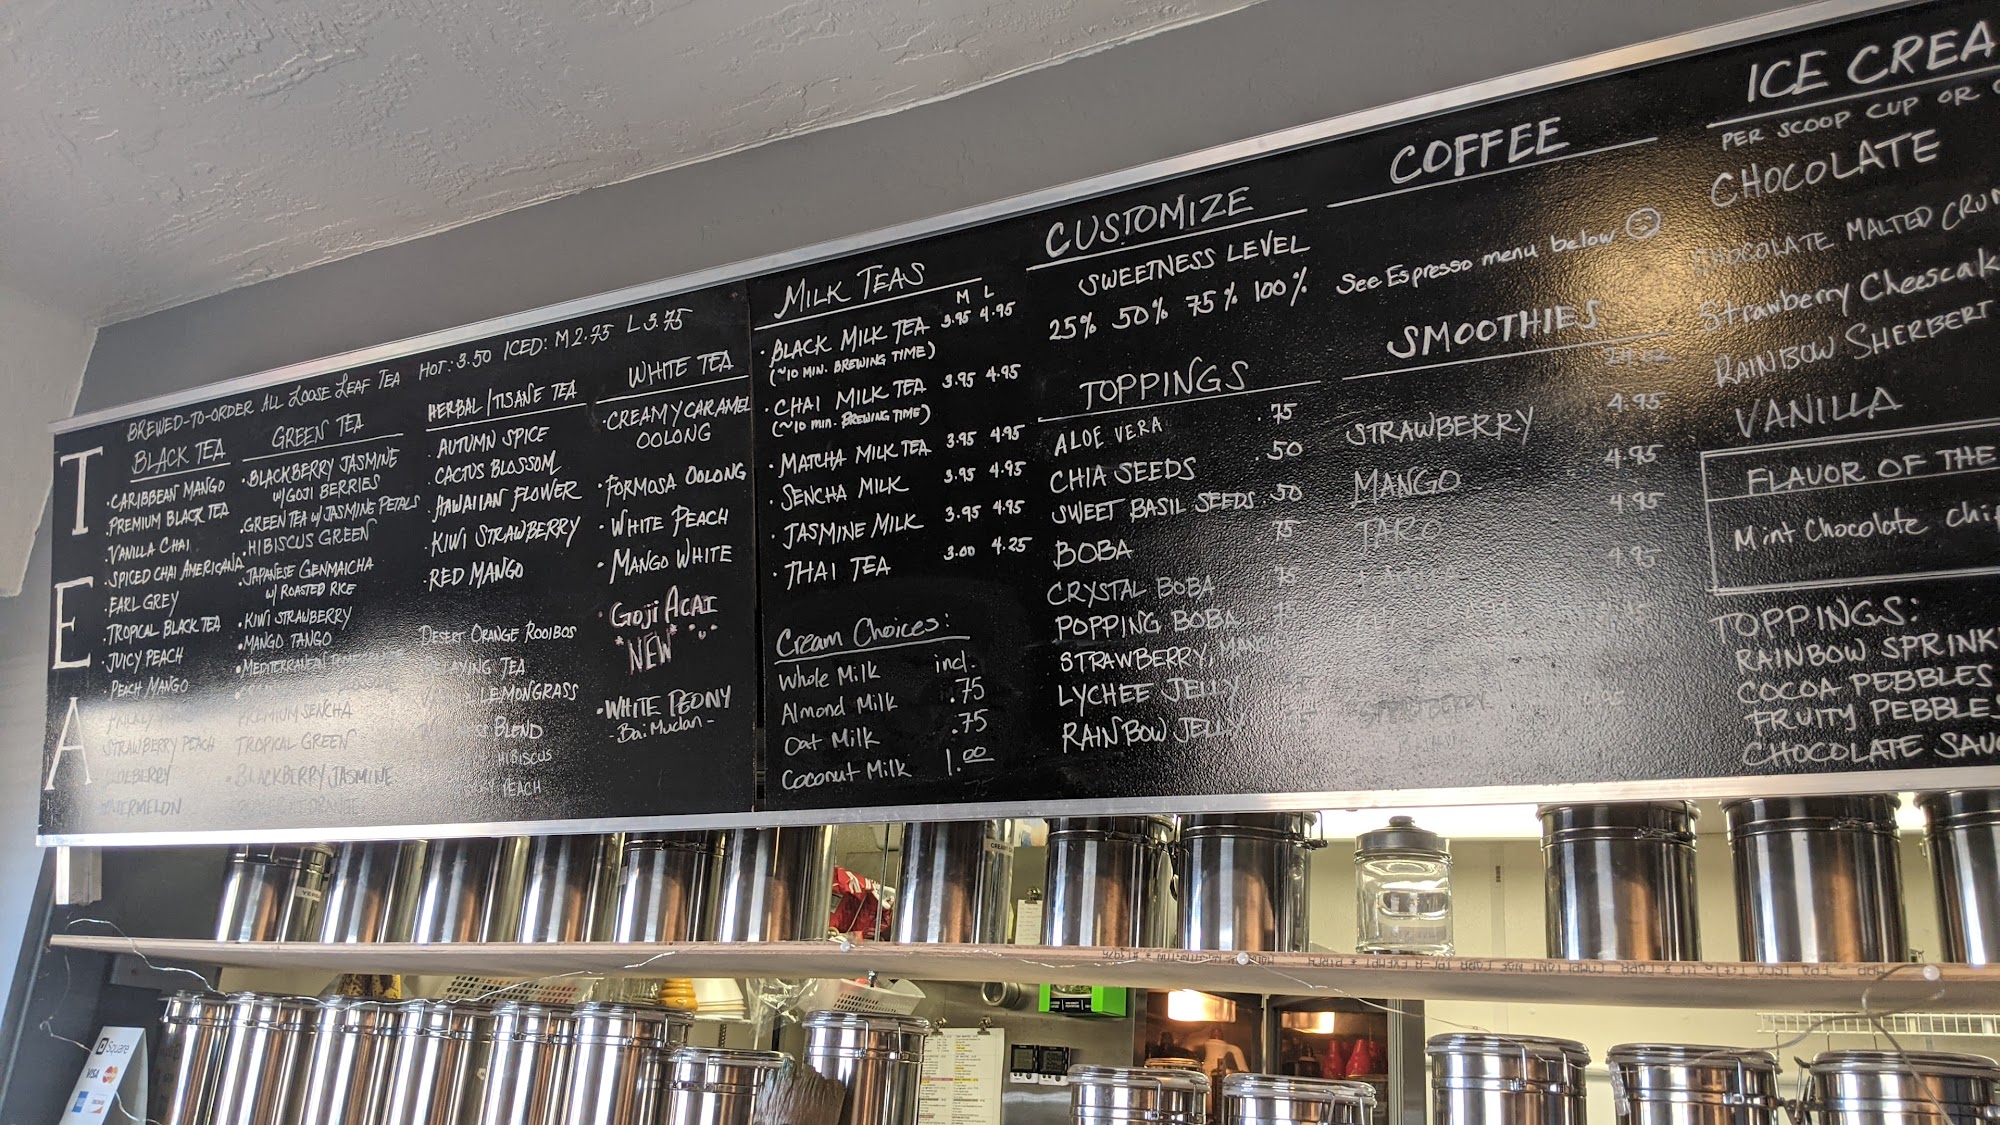 TEA
BREWED-TO-ORDER ALL LOOSE LEAF TEA HOT: 3.50 ICED: M 2.75 L 3.75
BLACK TEA
• CARIBBEAN MANGO
• PREMIUM BLACK TEA
• VANILLA CHAI
• SPICED CHAI AMERICANA
• EARL GREY
• TROPICAL BLACK TEA
• JUICY PEACH
• PEACH MANGO
STRAWBERRY PEACH
GREEN TEA
• BLACKBERRY JASMINE
W/ GOJI BERRIES
• GREEN TEA W/ JASMINE PETALS
• HIBISCUS GREEN
• JAPANESE GENMAICHA
W/ ROASTED RICE
• KIWI STRAWBERRY
• MANGO TANGO
• MEDITERRANEAN
PREMIUM SENCHA
TROPICAL GREEN
• BLACKBERRY JASMINE
HERBAL/TISANE TEA
• AUTUMN SPICE
• CACTUS BLOSSOM
• HAWAIIAN FLOWER
• KIWI STRAWBERRY
• RED MANGO
DESERT ORANGE ROOIBOS
TEA
LEMONGRASS
BLEND
HIBISCUS
PEACH
WHITE TEA
• CREAMY CARAMEL
OOLONG
• FORMOSA OOLONG
• WHITE PEACH
• MANGO WHITE
• GOJI ACAI
*NEW*
• WHITE PEONY
- Bai Mudan -
MILK TEAS
M L
• BLACK MILK TEA 3.95 4.95
(~10 MIN. BREWING TIME)
• CHAI MILK TEA 3.95 4.95
(~10 min. BREWING TIME)
• MATCHA MILK TEA 3.95 4.95
• SENCHA MILK 3.95 4.95
• JASMINE MILK 3.95 4.95
• THAI TEA 3.00 4.25
Cream Choices:
Whole Milk incl.
Almond Milk .75
Oat Milk .75
Coconut Milk 1.00
CUSTOMIZE
SWEETNESS LEVEL
25% 50% 75% 100%
TOPPINGS
ALOE VERA .75
CHIA SEEDS .50
SWEET BASIL SEEDS .50
BOBA .75
CRYSTAL BOBA
POPPING BOBA
STRAWBERRY, MANGO
LYCHEE JELLY
RAINBOW JELLY
COFFEE
See Espresso menu below
SMOOTHIES
24 oz
STRAWBERRY 4.95
MANGO 4.95
TARO 4.95
4.95
ICE CREA
PER SCOOP CUP OR
CHOCOLATE
CHOCOLATE MALTED CRUN
Strawberry Cheescak
RAINBOW SHERBERT
VANILLA
FLAVOR OF THE
Mint Chocolate Chip
TOPPINGS:
RAINBOW SPRINK
COCOA PEBBLES
FRUITY PEBBLES
CHOCOLATE SAU
Square
VISA